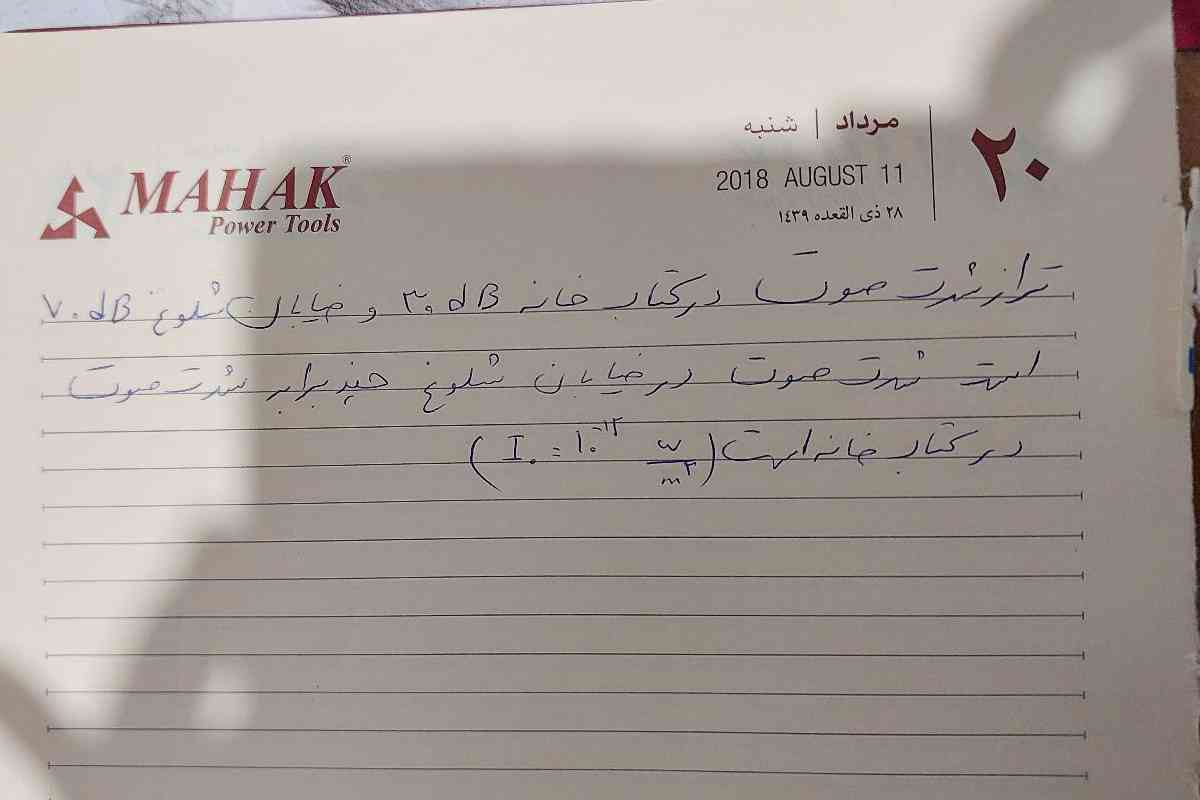 ۲۰
مرداد | شنبه
2018 AUGUST 11
۲۸ ذی القعده ۱٤۳۹
MAHAK®
Power Tools
تراز شدت صوت در کتاب خانه ۳۰ dB و خیابان شلوغ ۷۰ dB
است شدت صوت در خیابان شلوغ چند برابر شدت صوت
در کتاب خانه است (I₀ = ۱۰⁻¹² w/m²)